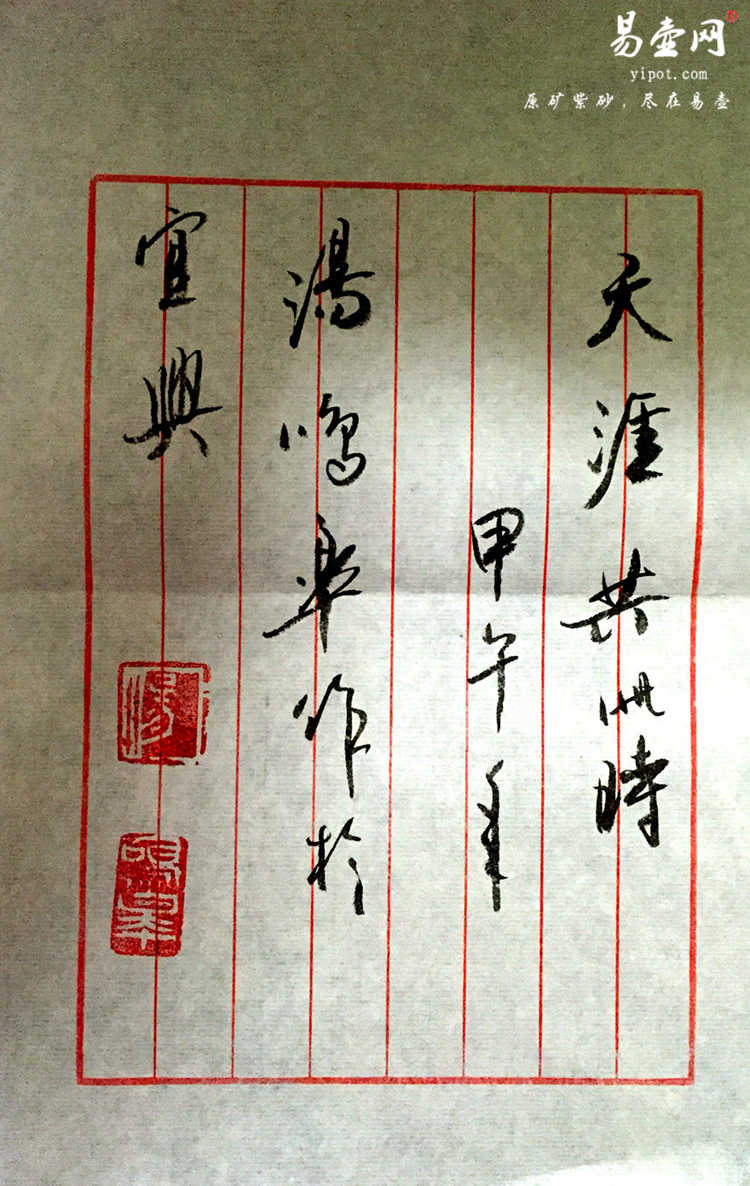 易壶网
yipot.com
原矿紫砂，尽在易壶
天涯共此時
甲午年
湯鳴皋作於
宜興
湯
鳴皋